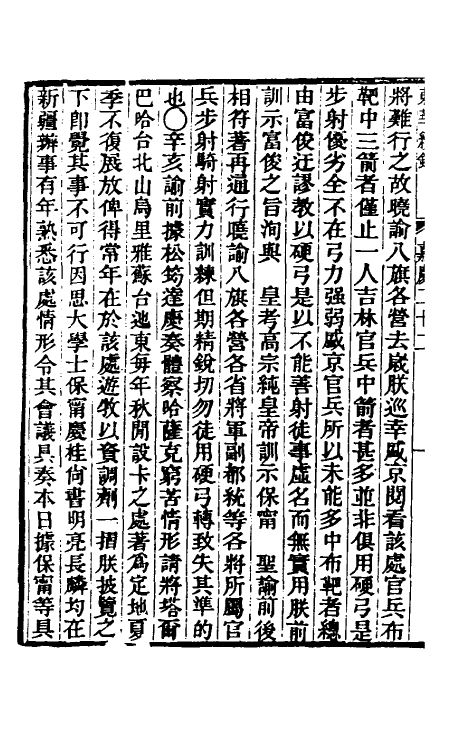 將難行之故曉諭八旗各營去歲朕巡幸盛京閱看該處官兵布
靶中三箭者僅止一人吉林官兵中箭者甚多並非俱用硬弓是
步射優劣全不在弓力强弱盛京官兵所以未能多中布靶者總
由富俊迂謬教以硬弓是以不能善射徒事虛名而無實用朕前
訓示富俊之旨洵與　皇考高宗純皇帝訓示保甯　聖諭前後
相符著再通行曉諭八旗各營各省將軍副都統等各將所屬官
兵步射騎射實力訓練但期精銳切勿徒用硬弓轉致失其準的
也○辛亥諭前據松筠達慶奏體察哈薩克窮苦情形請將塔爾
巴哈台北山烏里雅蘇台迤東每年秋閒設卡之處著爲定地夏
季不復展放俾得常年在於該處遊牧以資調劑一摺朕披覽之
下卽覺其事不可行因思大學士保甯慶桂尙書明亮長麟均在
新疆辦事有年熟悉該處情形令其會議具奏本日據保甯等具